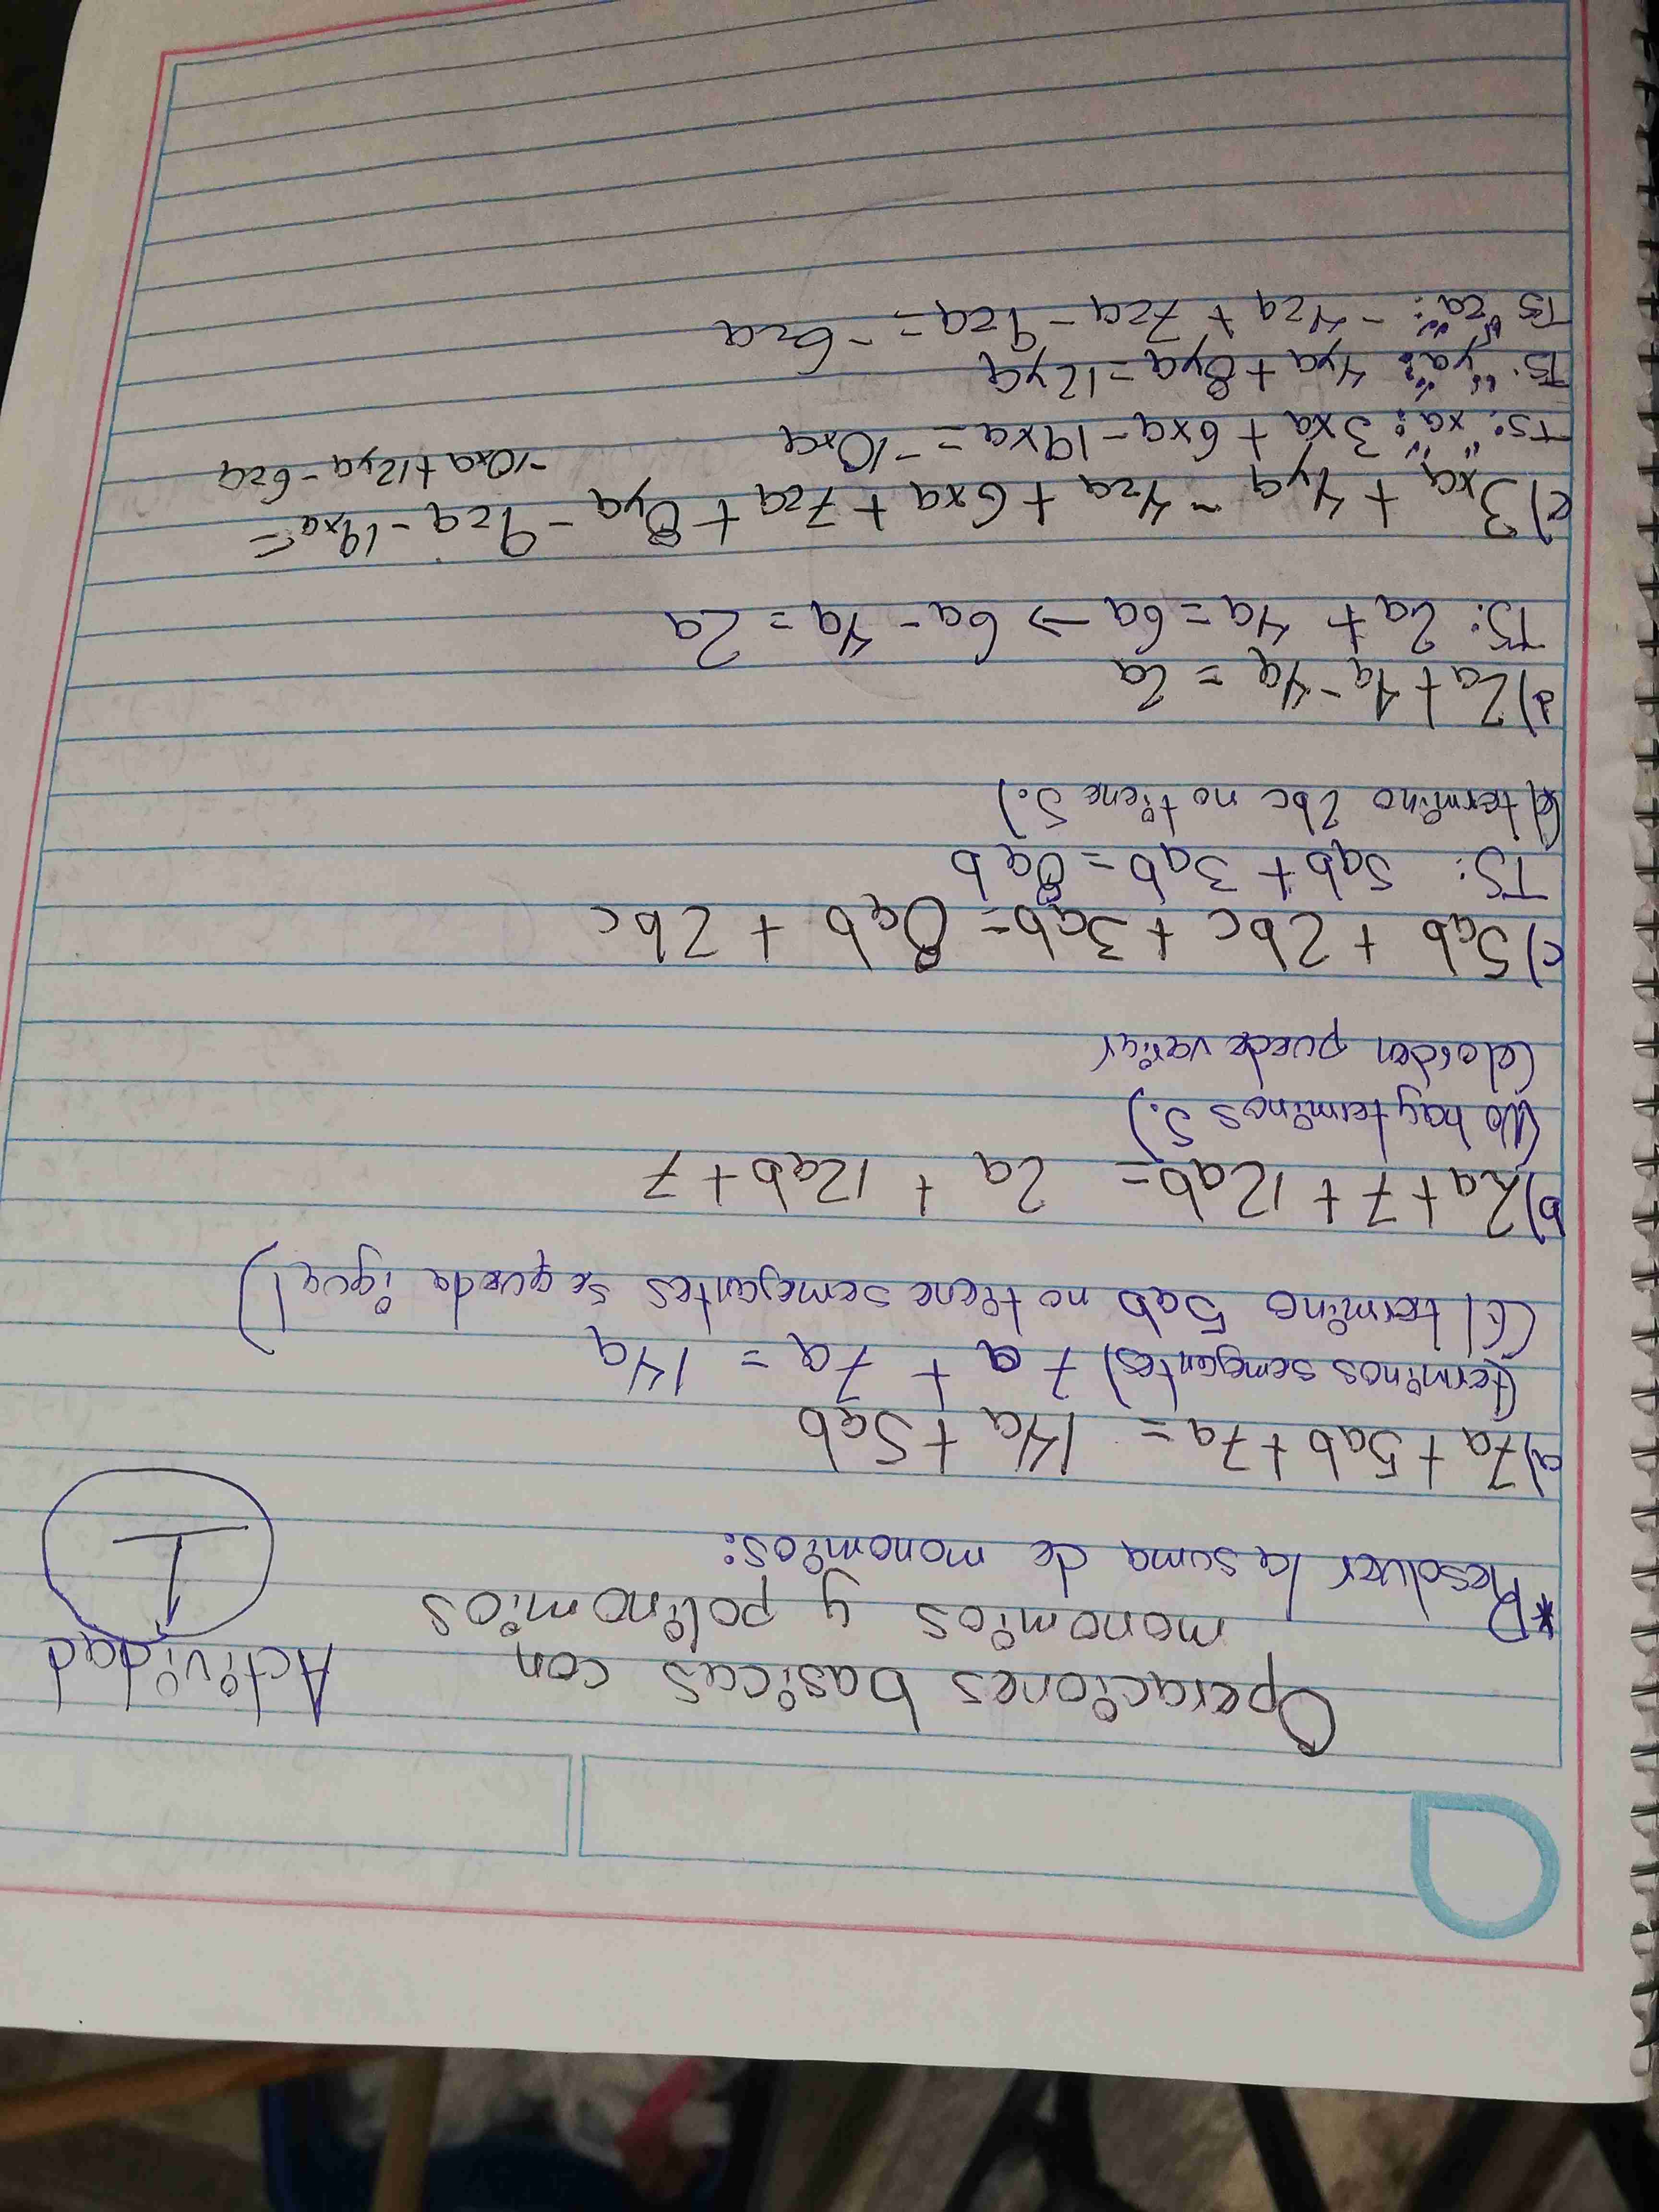 Operaciones basicas con
monomios y polinomios
Actividad
1
*Resolver la suma de monomios:
a) 7a + 5ab + 7a = 14a + 5ab
(terminos semejantes) 7a + 7a = 14a
(El termino 5ab no tiene semejantes se queda igual)
b) 2a + 7 + 12ab = 2a + 12ab + 7
(No hay terminos S.)
(el orden puede variar
c) 5ab + 2bc + 3ab = 8ab + 2bc
TS: 5ab + 3ab = 8ab
(El termino 2bc no tiene S.)
d) 2a + 4a - 4a = 2a
TS: 2a + 4a = 6a → 6a - 4a = 2a
e) 3xa + 4ya - 4za + 6xa + 7za + 8ya - 9za - 19xa =
-10xa + 12ya - 6za
TS: "xa": 3xa + 6xa - 19xa = -10xa
TS: "ya": 4ya + 8ya = 12ya
TS "za": -4za + 7za - 9za = -6za